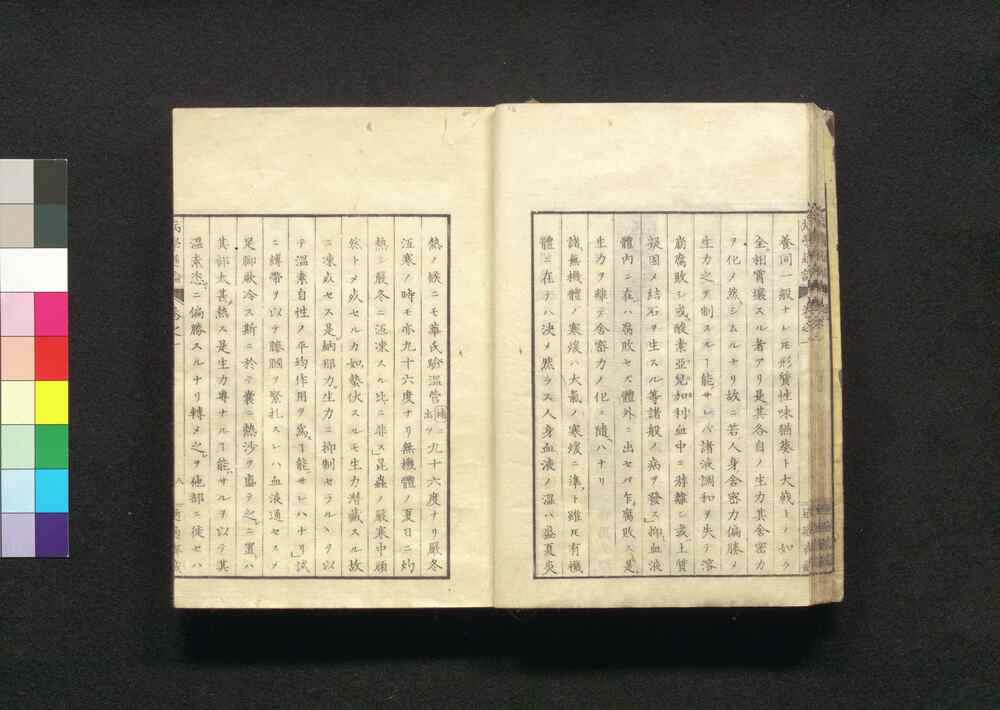 養同一般ナレ𪜈形質性味猶葵ト大戟トノ如ク
全相霄壤スル者アリ是其各自ノ生力其舍密力
ヲ化メ然シムルナリ故ニ若人身舍密力偏勝メ
生力之ヲ制スルヿ能サレバ諸液調和ヲ失テ溶
崩腐敗シ或酸素亞兒加利血中ニ游離シ或土質
凝固メ結石ヲ生スル等諸般ノ病ヲ發ス抑血液
體內ニ在ハ腐敗セズ體外ニ出セバ乍腐敗ス是
生力ヲ離テ舍密力ノ化ニ隨ハナリ
諸無機體ノ寒煖ハ大氣ノ寒煖ニ準ト雖𪜈有機
體ニ在テハ决メ然ラス人身血液ノ溫ハ盛夏炎
熱ノ候ニモ華氏驗溫管ニ九十六度ナリ嚴冬
沍寒ノ時モ亦九十六度ナリ無機體ノ夏日ニ灼
熱シ嚴冬ニ沍凍スル比ニ非ス昆蟲ノ嚴寒中頑
然トメ死セルカ如蟄伏スルモ生力潛藏スル故
ニ凍死セス是納那力生力ニ抑制セラルヽヲ以
テ溫素自性ノ平均作用ヲ爲ヿ能サレハナリ試
ニ縛帶ヲ以テ膝膕ヲ緊扎スレハ血液通セスメ
足脚厥冷ス斯ニ於テ囊ニ熱沙ヲ盛テ之ニ置ハ
其部太甚熱ス是生力專ナルヿ能サルヲ以テ其
溫素恣ニ偏勝スルナリ轉メ之ヲ他部ニ徙セハ